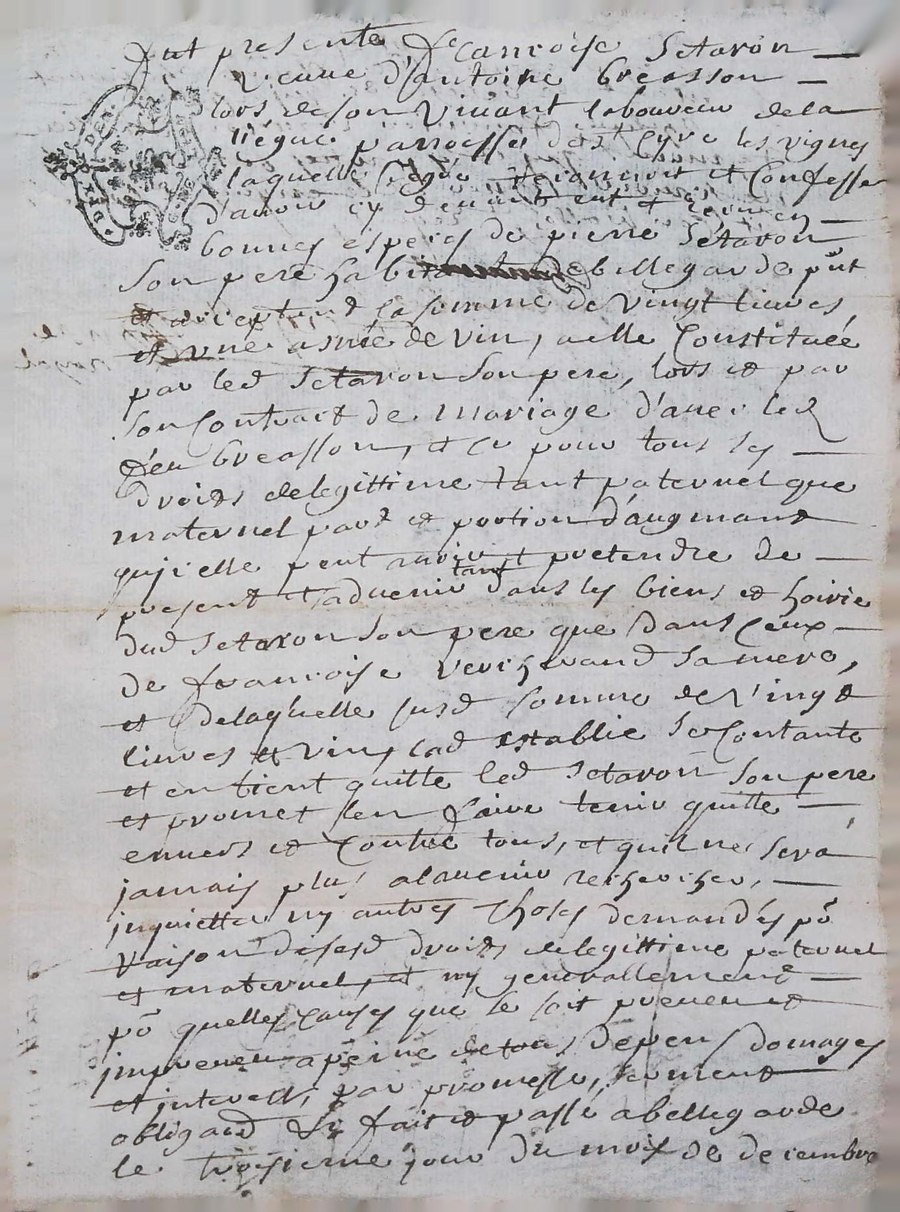 fut presente francoise setaron
veuve d'antoine breasson
lors de son vivant laboureur de la
liegue parroisse de st Cyre les vignes
laquelle de gré reconnoit et confesse
d'avoir cy devant eut et receu en
bonnes especes de pierre setaron
son pere habitant de bellegarde pnt
et acceptant la somme de vingt livres
et une asnée de vin, a elle constituée
par led setaron son pere, lors et par
son contrait de mariage d'avec led
feu breasson, et ce pour tous les
droits de legittime tant paternel que
maternel part et portion d'augmant
qu'icelle peut avoir et pretendre de
present et advenir tant dans les biens et hoirie
dud setaron son pere que dans ceux
de francoise verchrand sa mere,
et de laquelle susd somme de vingt
livres et vin, lad establie se contante
et en tient quitte led setaron son pere
et promet l'en faire tenir quitte
envers et contre tous, et quil ne sera
jamais plus a lavenir recherchev,
inquietter ny autres choses demandés po
raison desesd droits de legittime paternel
et maternel, et ny generallement
po quelles causes que se soit preveu et
impreveu a peine de tous depens domages
et interests, par promesse, serment
obligaõn fait et passé a bellegarde
le troisieme jour du mois de decembre